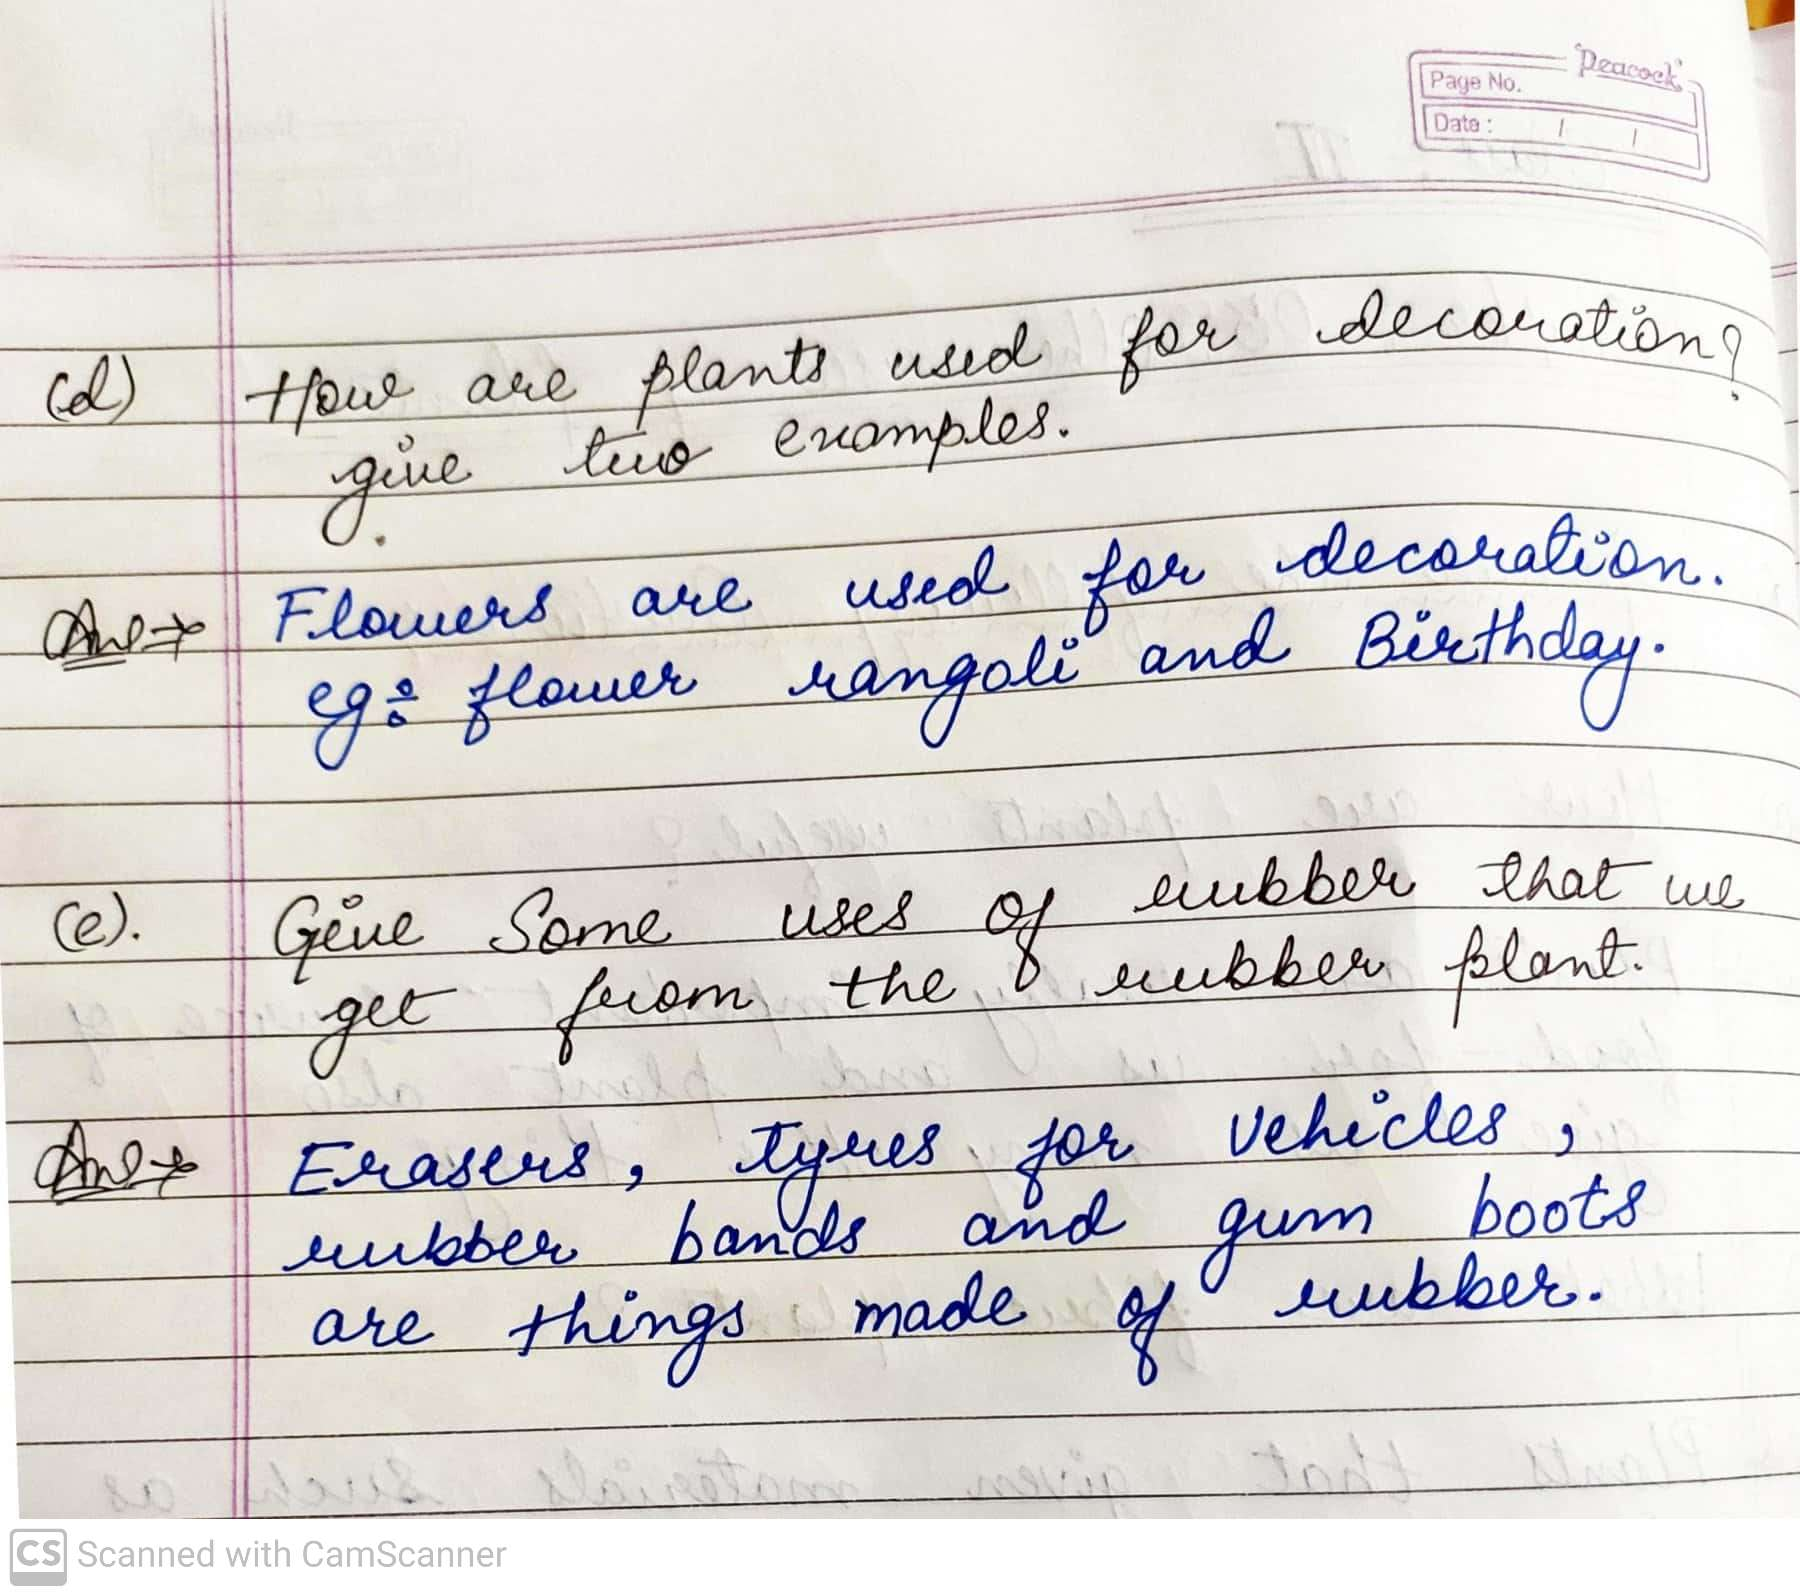 Peacock
Page No.
Date : / /
(d) How are plants used for decoration?
give two examples.
Ans→ Flowers are used for decoration.
eg: flower rangoli and Birthday.
(e). Give Some uses of rubber that we
get from the rubber plant.
Ans→ Erasers, tyres for vehicles,
rubber bands and gum boots
are things made of rubber.
CS Scanned with CamScanner